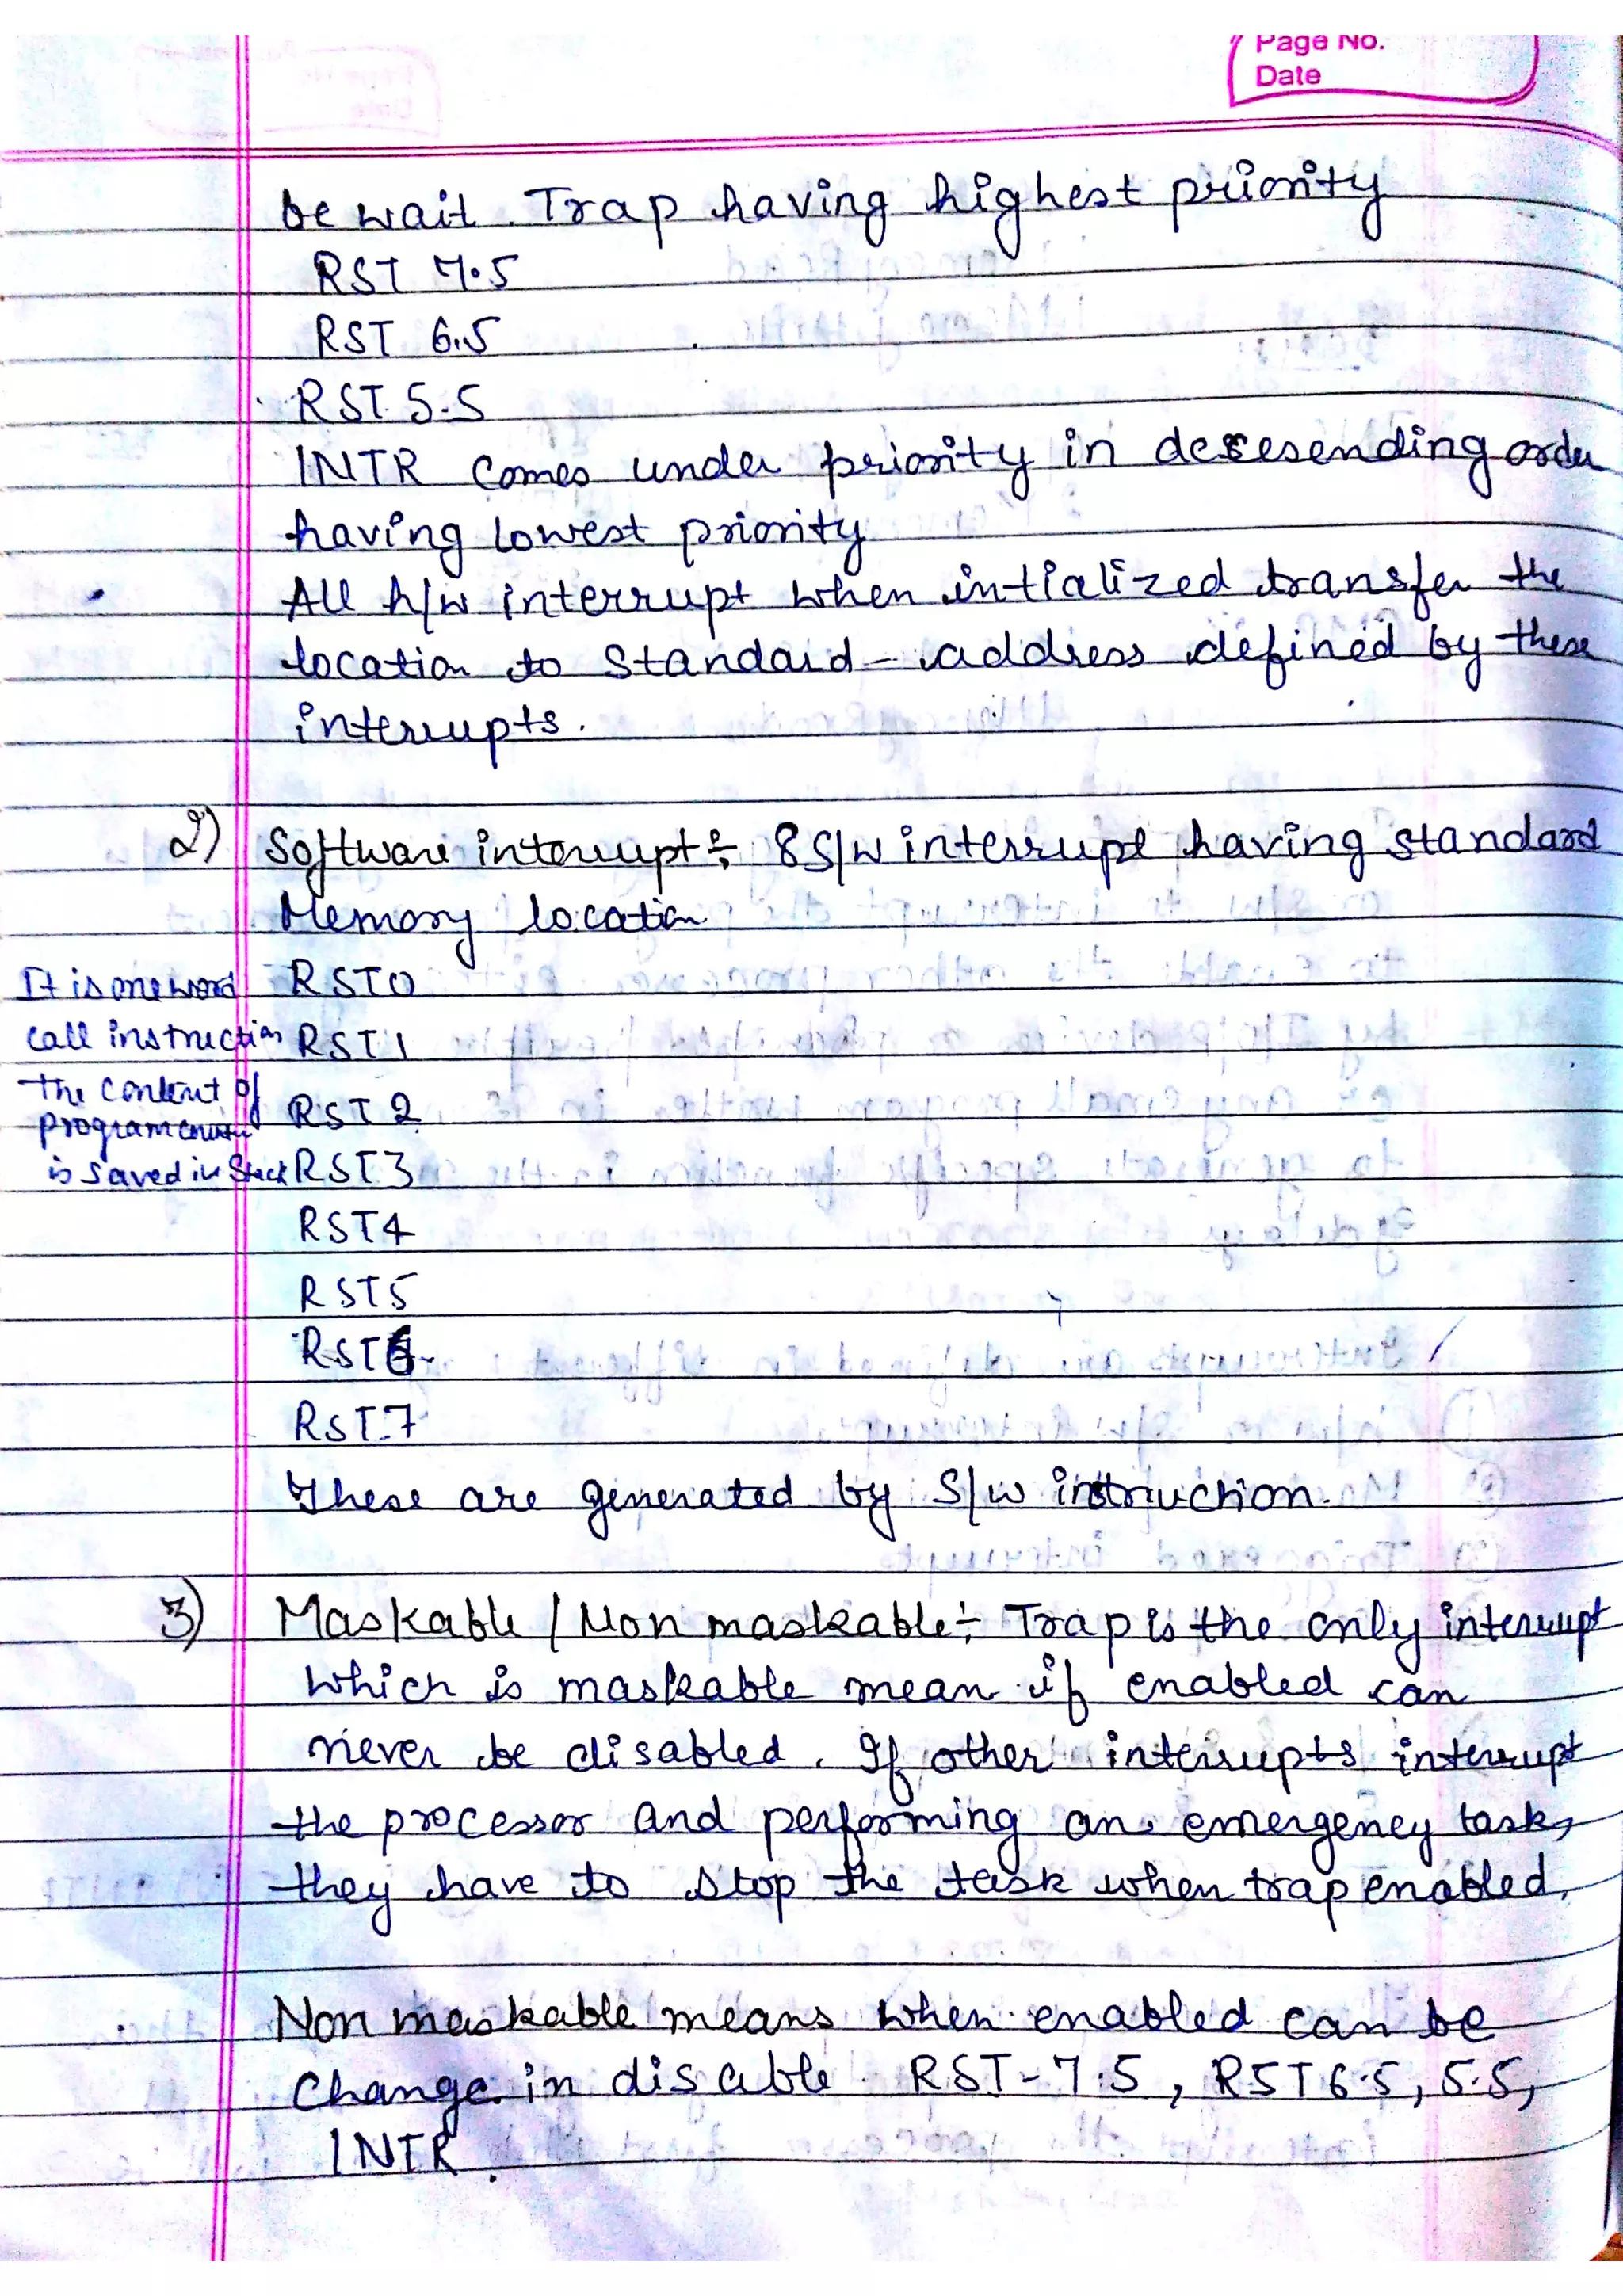 Page No.
Date
be wait. Trap having highest priority
RST 7.5
RST 6.5
RST 5.5
INTR comes under priority in decesending order
having lowest priority
All h/w interrupt when intialized transfer the
location to standard - address defined by these
interrupts.
2) Software interrupt ÷ 8 S/W interrupt having standard
Memory location
It is one word
call instruction
the content of
program counter
is saved in stack
RST0
RST1
RST2
RST3
RST4
RST5
RST6
RST7
These are generated by S/w instruction.
3) Maskable / Non maskable ÷ Trap is the only interrupt
which is maskable mean if enabled can
never be disabled. If other interrupts interrupt
the processor and performing an emergency task,
they have to stop the task when trap enabled.
Non maskable means when enabled can be
change in disable. RST-7.5, RST 6.5, 5.5,
INTR.